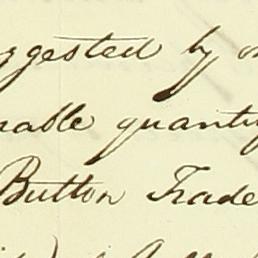 ggested by
nable quantity
Button Trade